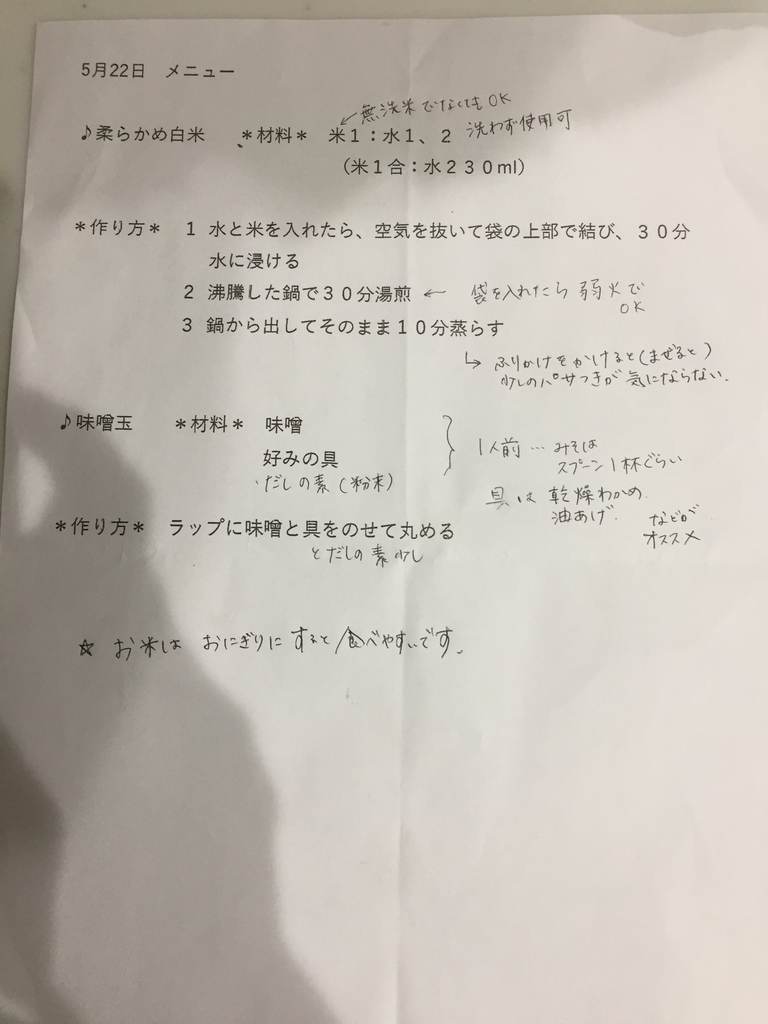 5月22日　メニュー
←無洗米でなくてもOK
♪柔らかめ白米　＊材料＊　米１：水１、２　洗わず使用可
（米１合：水２３０ml）
＊作り方＊　1　水と米を入れたら、空気を抜いて袋の上部で結び、３０分
水に浸ける
2　沸騰した鍋で３０分湯煎　←　袋を入れたら弱火で
OK
3　鍋から出してそのまま１０分蒸らす
↳ ふりかけをかけると(まぜると)
少しのパサつきが気にならない.
♪味噌玉　＊材料＊　味噌
好みの具
・だしの素（粉末）
1人前…みそは
スプーン1杯ぐらい
具は乾燥わかめ.
油あげ.
などが
オススメ
＊作り方＊　ラップに味噌と具をのせて丸める
とだしの素少し
☆ お米は おにぎりに すると食べやすいです。